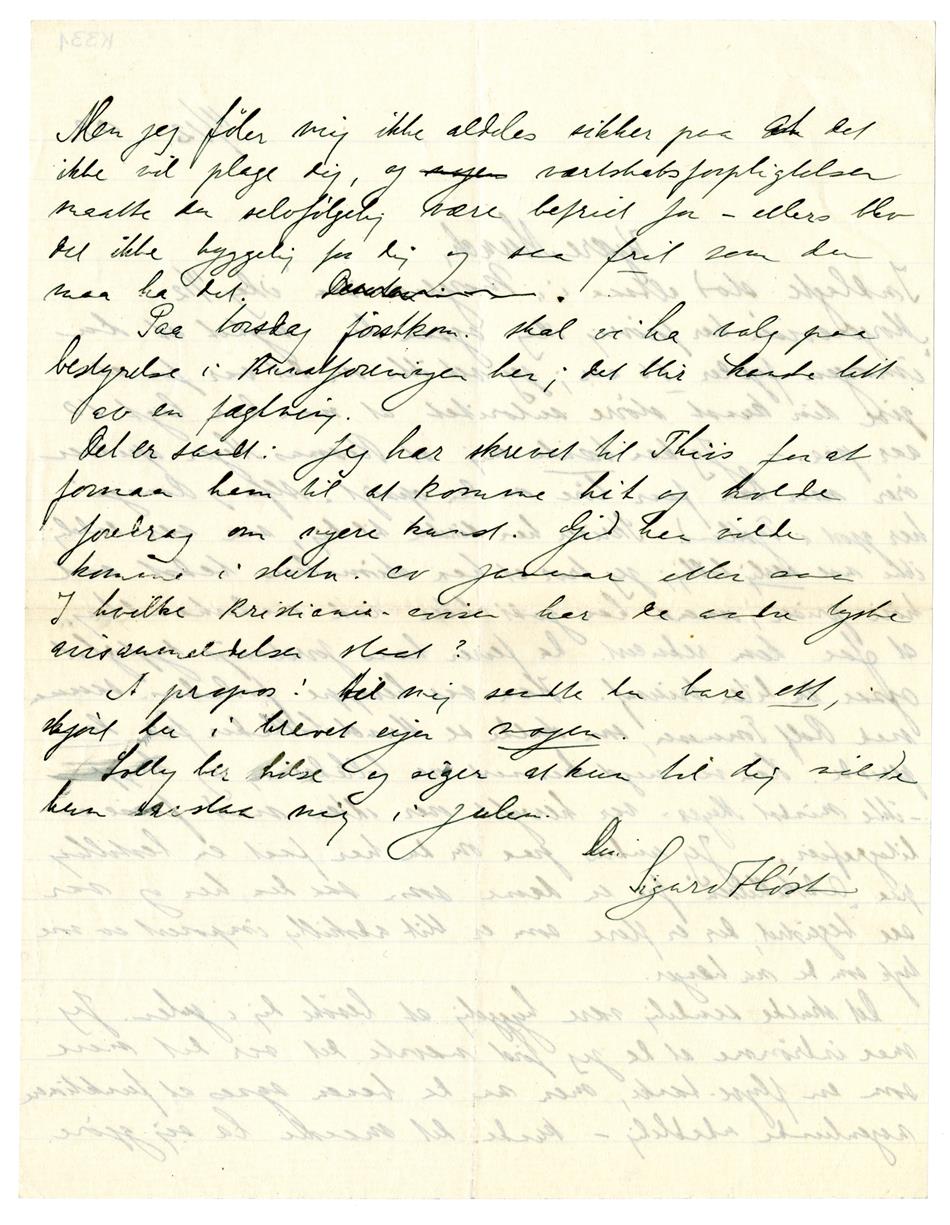 Men jeg føler mig ikke aldeles sikker paa at det
ikke vil plage dig, og nogen værtskabsforpligtelser
maatte du selvfølgelig være befriet for – ellers blev
det ikke hyggelig for dig og saa frit som du
maa ha det.
Paa torsdag førstkom. skal vi ha valg paa
bestyrelse i Kunstforeningen her; det blir kanske litt
av en fægtning.
Det er sandt: Jeg har skrevet til Thiis for at
formaa ham til at komme hit og holde
foredrag om nyere kunst. Gid han vilde
komme i slutn. av januar eller saa
I hvilke Kristiania-aviser har de andre tyske
avisanmeldelser staat?
A propos! til mig sendte du bare ett,
skjønt du i brevet siger nogen.
ber hilse og siger at hun til dig vilde
hun mig i julen.
Din
Sigurd Høst
K331